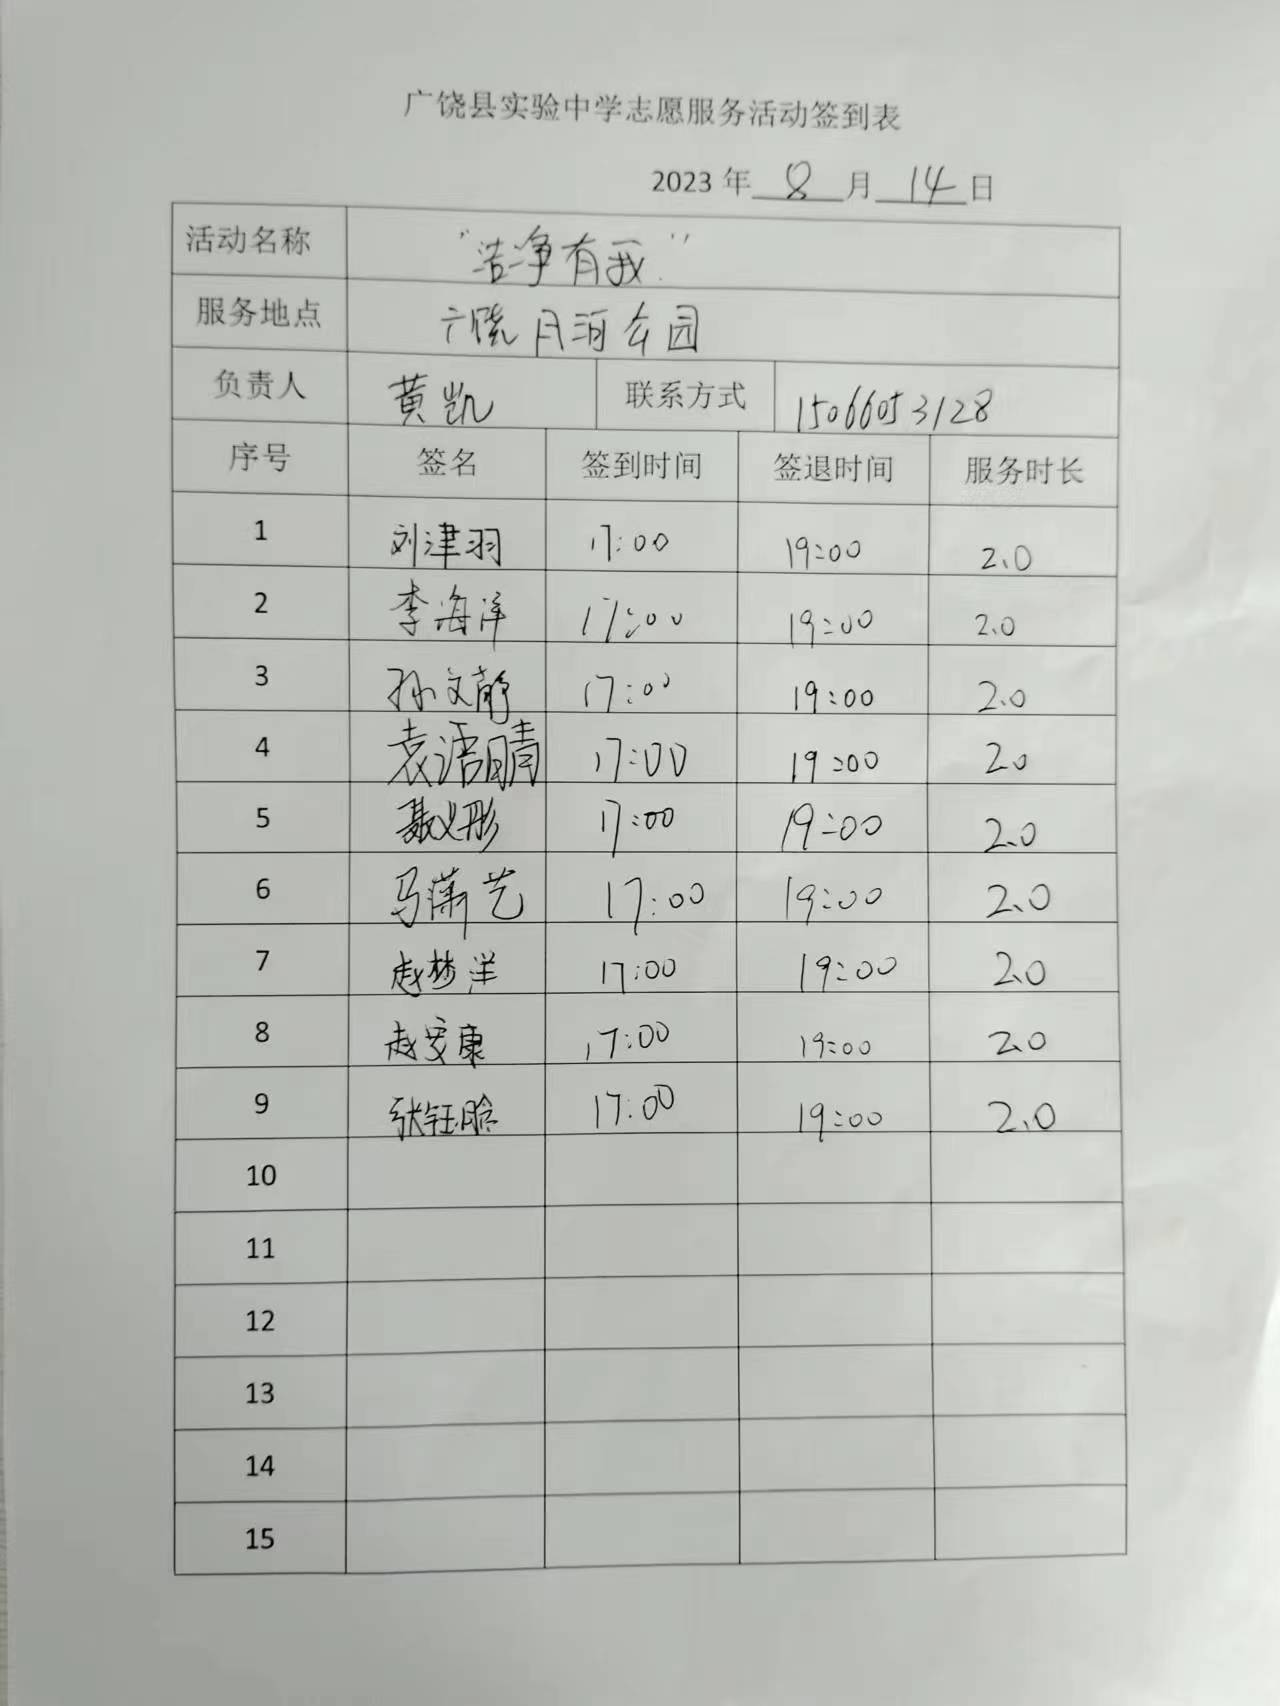 广饶县实验中学志愿服务活动签到表
2023 年 8 月 14 日
活动名称 “洁净有我”
服务地点 广饶月河公园
负责人 黄凯 联系方式 15066053128
序号 签名 签到时间 签退时间 服务时长
1 刘津羽 17:00 19:00 2.0
2 李海洋 17:00 19:00 2.0
3 孙文静 17:00 19:00 2.0
4 袁语晴 17:00 19:00 2.0
5 聂义彤 17:00 19:00 2.0
6 马潇艺 17:00 19:00 2.0
7 赵梦洋 17:00 19:00 2.0
8 赵安康 17:00 19:00 2.0
9 张钰晗 17:00 19:00 2.0
10
11
12
13
14
15